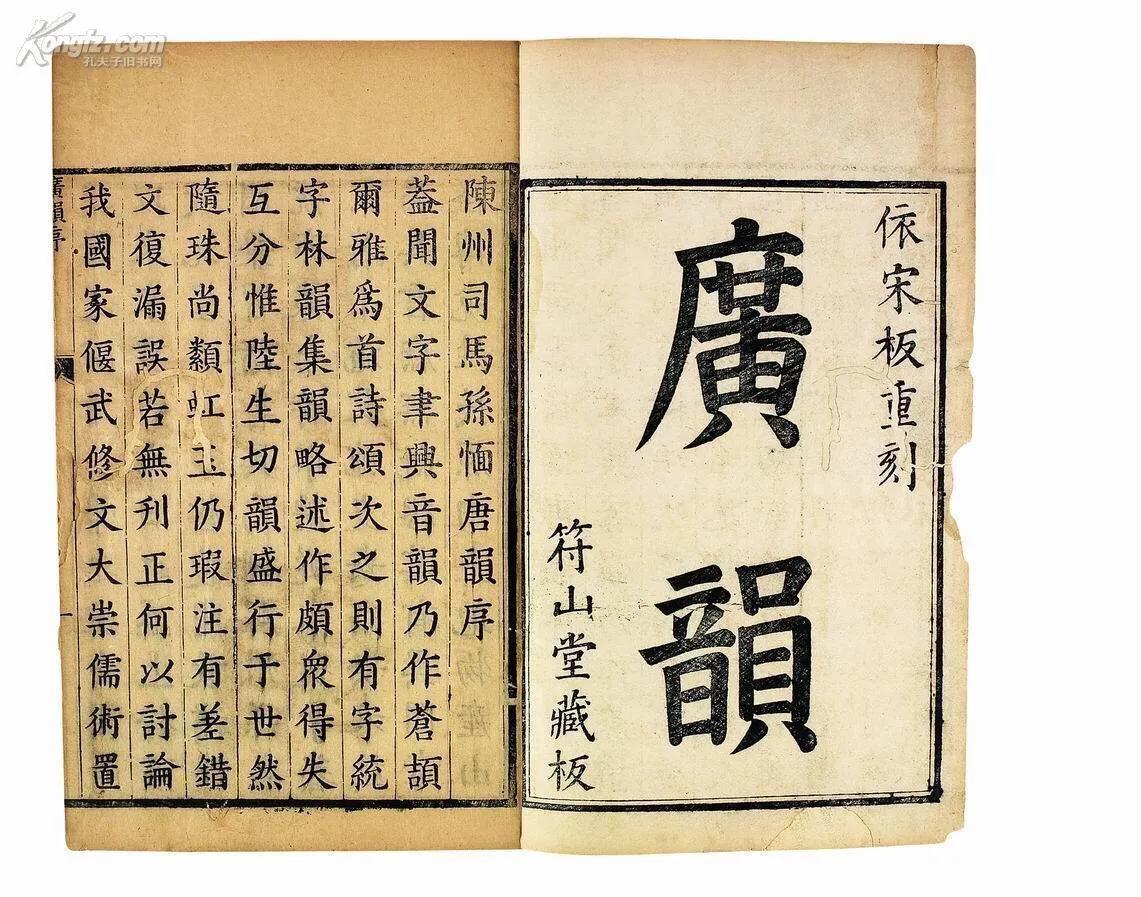 Kongfz.com
孔夫子旧书网
依宋板重刻
廣韻
符山堂藏板
陳州司馬孫愐唐韻序
蓋聞文字聿興音韻乃作蒼頡
爾雅爲首詩頌次之則有字統
字林韻集韻略述作頗衆得失
互分惟陸生切韻盛行于世然
隨珠尚纇虹玉仍瑕注有差錯
文復漏誤若無刊正何以討論
我國家偃武修文大崇儒術置
廣韻序
一